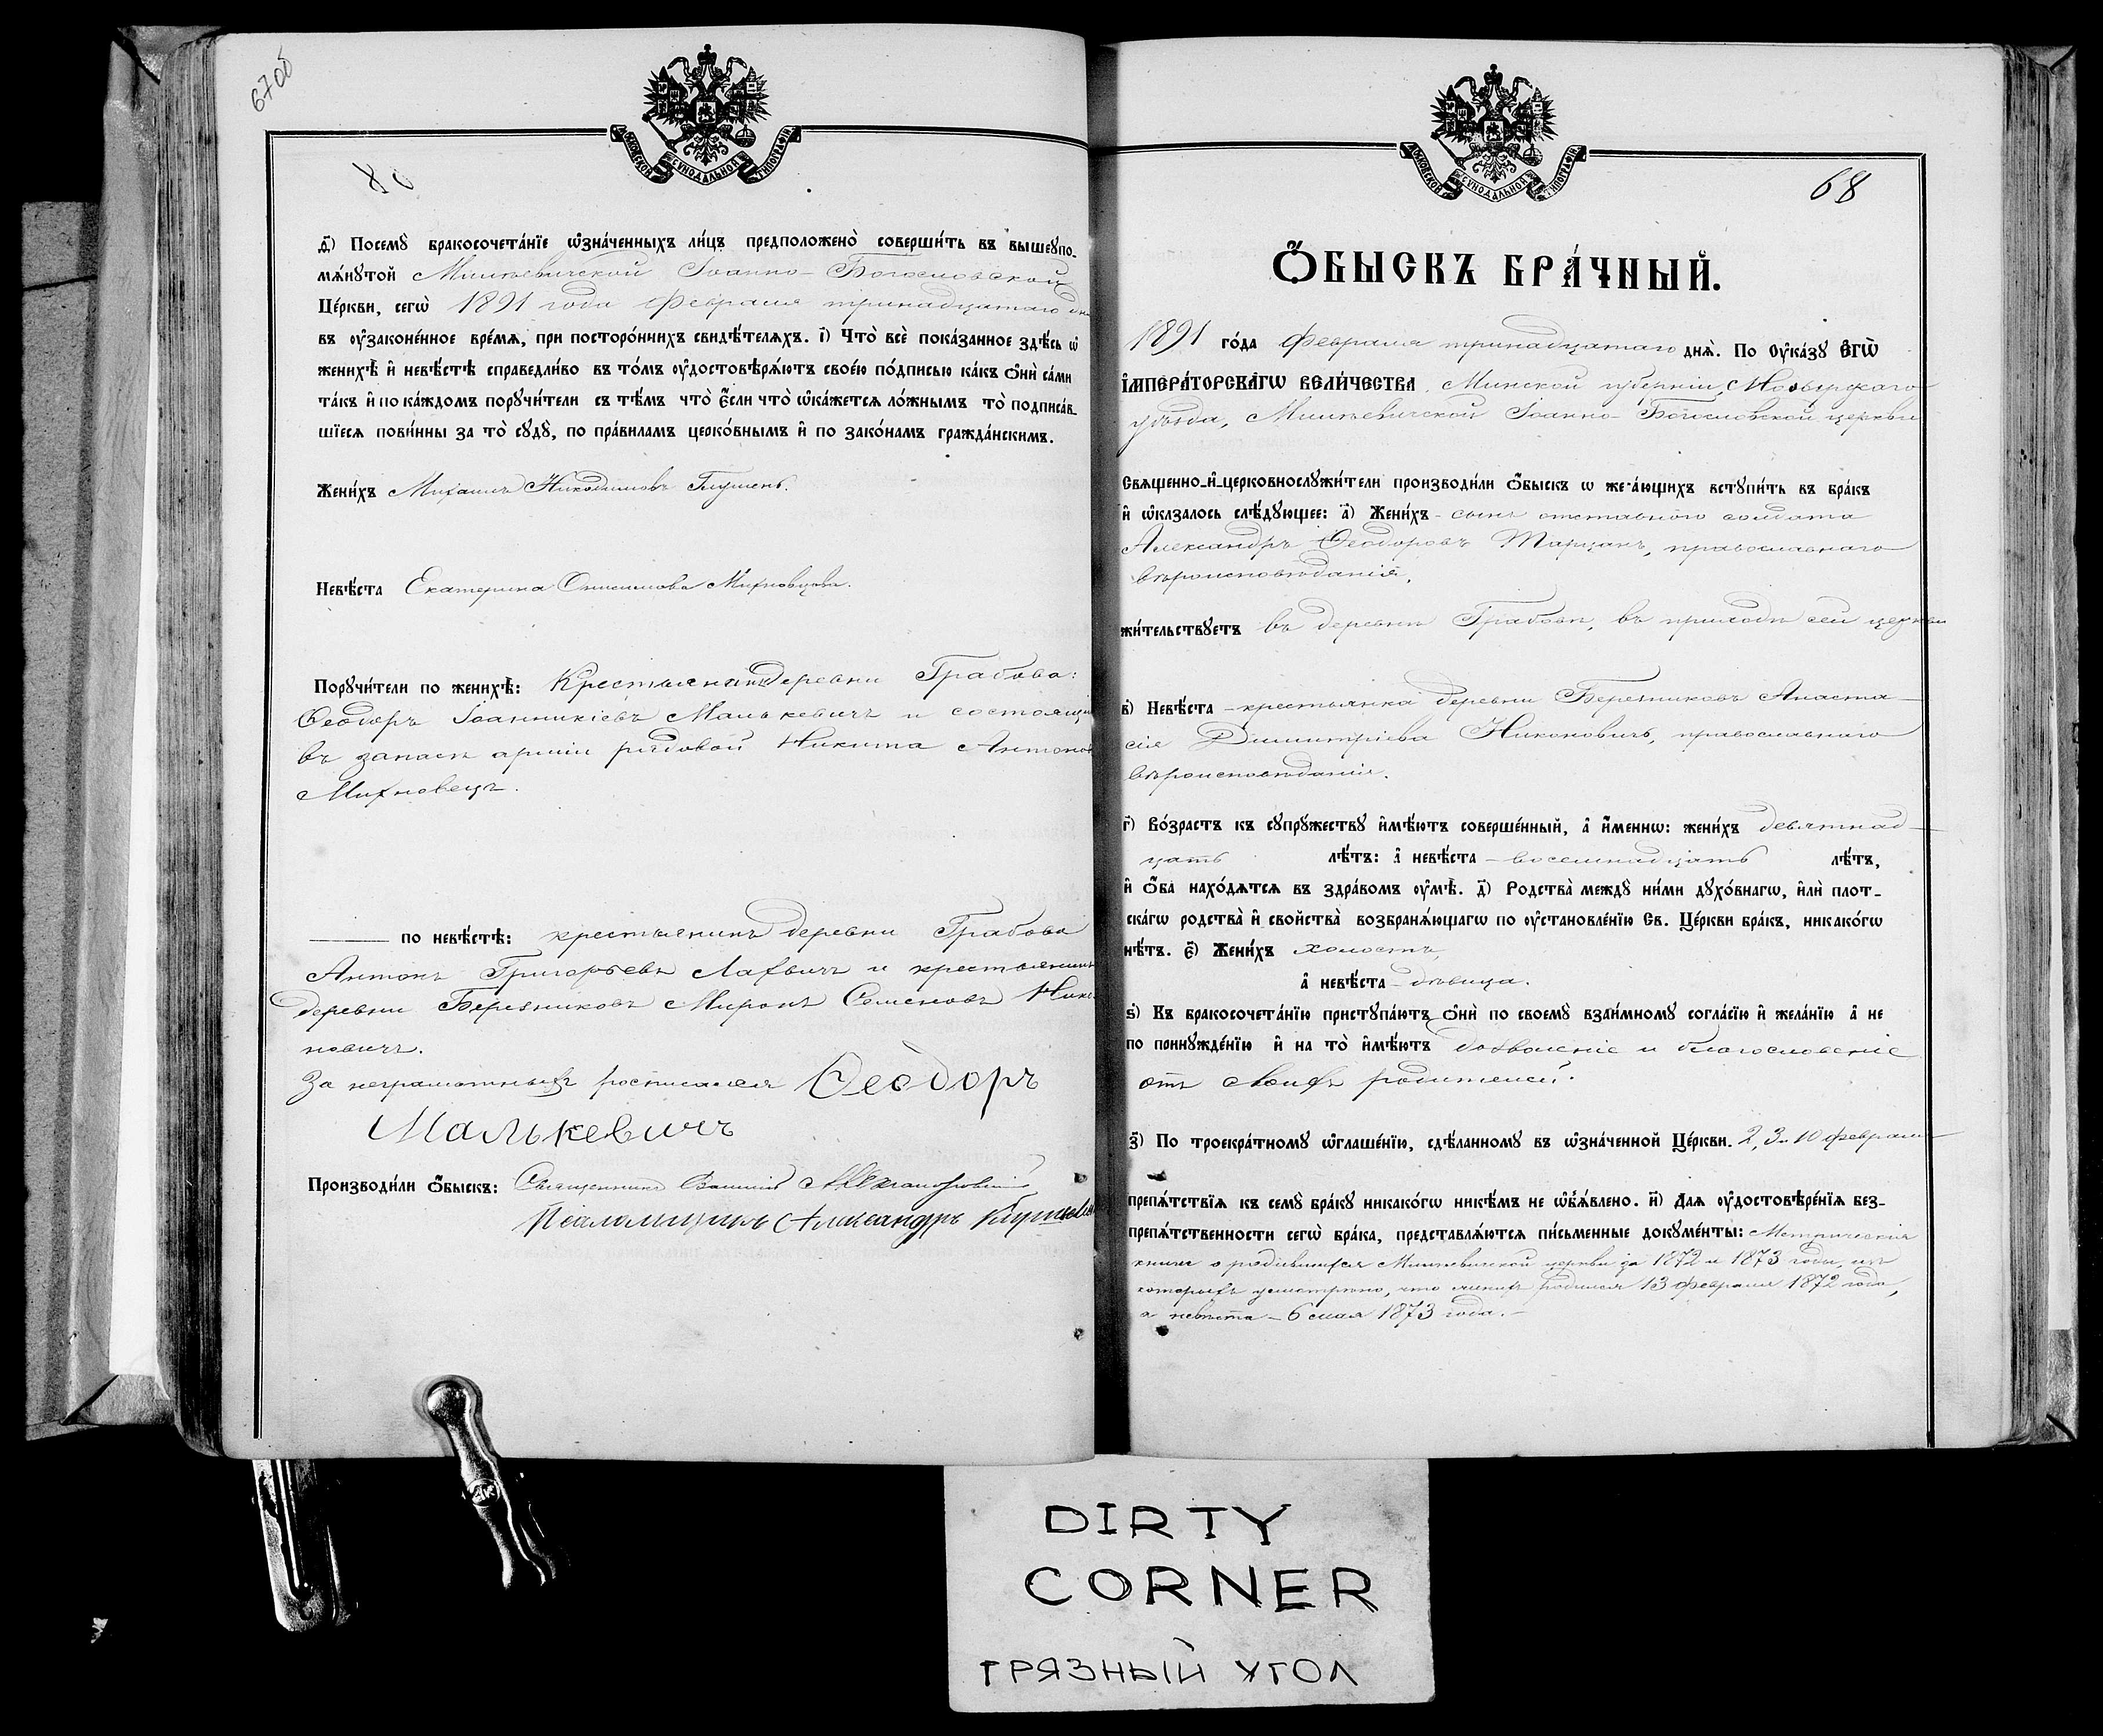 67об
МОСКОВСКОЙ СѴНОДАЛЬНОЙ ТИПОГРАФІИ
ѳ҃) Посемꙋ̀ бракосочета́нїе ѡ҆зна́ченныхъ ли́цъ предположено̀ соверши́ть въ вышеꙋпо-
мѧ́нꙋтой Милевичской Іоанно-Богословской
Це́ркви, сегѡ̀ 1891 года февраля тринадцатаго дня
въ ᲂу҆законе́нное вре́мѧ, при посторо́ннихъ свидѣ́телѧхъ. і҃) Что̀ всѐ пока́занное здѣ́сь ѡ҆
женихѣ̀ и҆ невѣ́стѣ справедли́во въ то́мъ ᲂу҆достовѣрѧ́ютъ свое́ю по́дписью ка́къ ѻ҆нѝ са́ми
та́къ и҆ по ка́ждомъ порꙋчи́тели съ тѣ́мъ что̀ є҆́сли что̀ ѡ҆ка́жется ло́жнымъ то̀ подписа́в-
шїеся пови́нны за то̀ сꙋдꙋ̀, по пра́виламъ церко́внымъ и҆ по зако́намъ гражда́нскимъ.
Жени́хъ Михаилъ Никодимовъ
Невѣ́ста Екатерина Онисимова Михновцова.
Порꙋчи́тели по женихѣ̀: Крестьянинъ деревни Грабова:
Ѳеодоръ Іоанникіевъ Малькевичъ и состоящій
въ запасѣ арміи рядовой Никита Антоновъ
Михновецъ.
по невѣ́стѣ: крестьянинъ деревни Грабова
Антонъ Григорьевъ Лахвичъ и крестьянинъ
деревни Березниковъ Миронъ Семеновъ Нико-
новичъ.
За неграмотныхъ росписался Ѳеодоръ
Малькевичъ
Производи́ли ѻ҆́быскъ: Священникъ Василій
Псаломщикъ Александръ
МОСКОВСКОЙ СѴНОДАЛЬНОЙ ТИПОГРАФІИ
68
Ѻ҆́БЫСКЪ БРА́ЧНЫЙ.
1891 го́да февраля тринадцатаго днѧ̀. По Оу҆ка́зꙋ Є҆ГѠ̀
І҆МПЕРА́ТОРСКАГѠ ВЕЛИ́ЧЕСТВА Минской губерніи, Мозырскаго
уѣзда, Милевичской Іоанно-Богословской церкви
Свѧщенно-и҆-церковнослꙋжи́тели производи́ли ѻ҆́быскъ ѡ же а́ющихъ встꙋпи́ть въ бра́къ
и҆ ѡ҆казалось слѣ́дꙋющее: а҃) Жени́хъ - сынъ отставного солдата
Александръ Ѳеодоровъ Таруанъ, православнаго
вѣроисповѣданія,
жи́тельствꙋетъ въ деревнѣ Грабовѣ, въ приходѣ сей церкви
в҃) Невѣ́ста - крестьянка деревни Березниковъ Анаста-
сія Димитріева Никоновичъ, православнаго
вѣроисповѣданія.
г҃) Во́зрастъ къ сꙋпрꙋ́жествꙋ и҆мѣ́ютъ соверше́нный, а҆ и҆́менно: жени́хъ девятнад-
цать лѣ́тъ: а҆ невѣ́ста - восемнадцать лѣ́тъ,
и҆ ѻ҆́ба нахо́дѧтсѧ въ здра́вомъ ᲂу҆мѣ̀. д҃) Родства̀ междꙋ̀ ни́ми дꙋхо́внагѡ, и҆лѝ плот-
ска́гѡ родства̀ и҆ свойства̀ возбранѧ́ющагѡ по ᲂу҆становле́нїю Св. Це́ркви бра́къ, никако́гѡ
нѣ́тъ. є҃) Жени́хъ холостъ,
а҆ невѣ́ста - дѣвица.
ѕ҃) Къ бракосочета́нїю пристꙋпа́ютъ ѻ҆нѝ по своемꙋ̀ взаи́мномꙋ согла́сїю и҆ жела́нїю а҆ не
по принꙋжде́нїю и҆ на то̀ и҆мѣ́ютъ дозволеніе и благословеніе
отъ своихъ родителей.
з҃) По троекра́тномꙋ ѡ҆глаше́нїю, сдѣ́ланномꙋ въ ѡ҆зна́ченной Це́ркви. 2, 3 и 10 февраля
препѧ́тствїѧ къ семꙋ̀ бра́кꙋ никако́гѡ никѣ́мъ не ѡ҆б̾ѧ́влено. и҃) Длѧ ᲂу҆достовѣре́нїѧ без-
препѧ́тственности сегѡ̀ бра́ка, представлѧ́ютсѧ пи́сьменные докꙋме́нты: Метрическія
книги о родившихся Милевичской церкви за 1872 и 1873 годы, изъ
которыхъ усмотрено, что женихъ родился 13 февраля 1872 года,
а невѣста - 6 мая 1873 года. -
DIRTY
CORNER
ГРЯЗНЫЙ УГОЛ